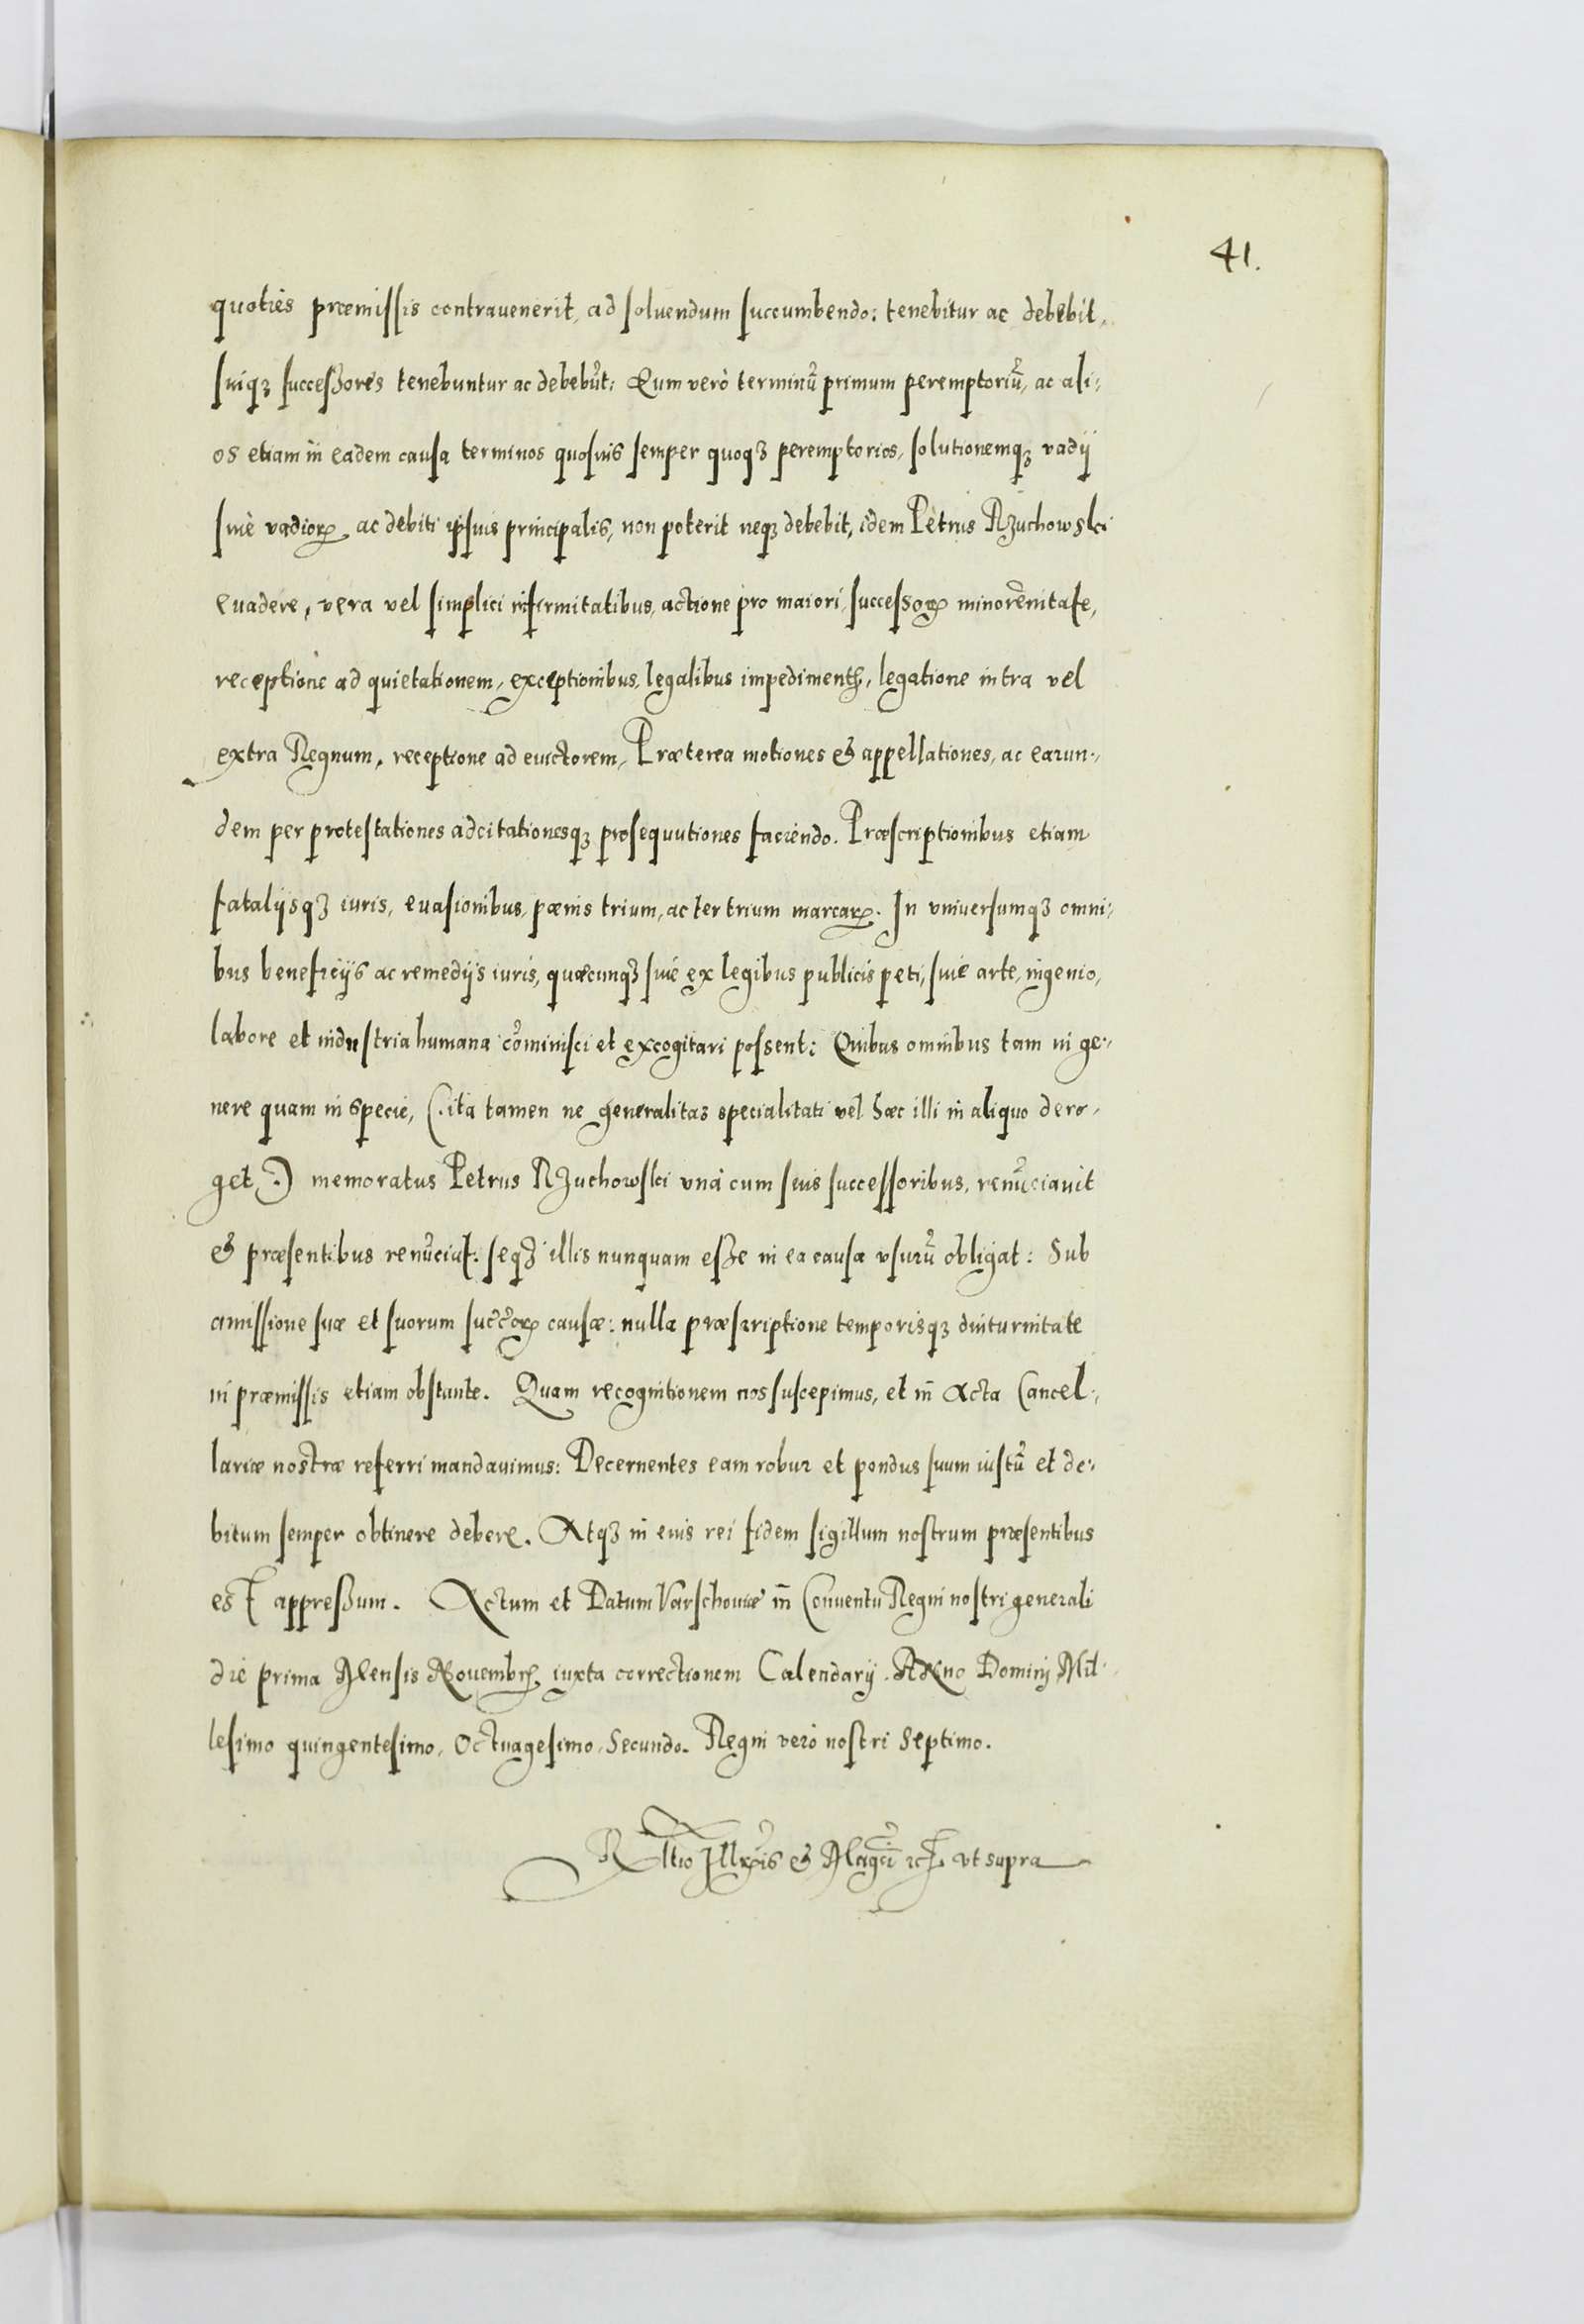 41.
quoties præmissis contrauenerit, ad soluendum succumbendo: tenebitur ac debebit,
suiqꝫ successores tenebuntur ac debebūt: Eum verò terminū primum peremptoriū, ac ali:
os etiam in eadem causa terminos quosuis semper quoqꝫ peremptorios, solutionemqꝫ vadij
siue vadioꝝ, ac debiti ipsius principalis, non poterit neqꝫ debebit, idem Petrus Rzuchowski
euadere, vera vel simplici infirmitatibus, actione pro maiori, successoꝝ minorēnitate,
receptione ad quietationem, exceptionibus, legalibus impedimentꝭ, legatione intra vel
extra Regnum, receptione ad euictorem, Præterea motiones & appellationes, ac earun:
dem per protestationes adcitationesqꝫ prosequutiones faciendo. Præscriptionibus etiam
fatalijsqꝫ iuris, euasionibus, pœnis trium, ac ter trium marcaꝝ. In vniuersumqꝫ omni:
bus beneficijs ac remedijs iuris, quæcunqꝫ siue ex legibus publicis peti, siue arte, ingenio,
labore et industria humana cōminisci et excogitari possent: Quibus omnibus tam in ge:
nere quam in specie, (. ita tamen ne generalitas specialitati vel hæc illi in aliquo dero:
get .) memoratus Petrus Rzuchowski vnà cum suis successoribus, renūciauit
& præsentibus renūciat: seqꝫ illis nunquam esse in ea causa vsurū obligat: Sub
amissione suæ et suorum succ̄oꝝ causæ: nulla præscriptione temporisqꝫ diuturnitate
in præmissis etiam obstante. Quam recognitionem nos suscepimus, et in̄ Acta Cancel:
lariæ nostræ referri mandauimus: Decernentes eam robur et pondus suum iustū et de:
bitum semper obtinere debere. Atqꝫ in euis rei fidem sigillum nostrum præsentibus
est appressum. Actum et Datum Varschouiæ in̄ Conuentu Regni nostri generali
die prima Mensis Nouembrꝭ, iuxta correctionem Calendarij. Anno Domini Mil:
lesimo quingentesimo, Octuagesimo, Secundo. Regni verò nostri Septimo.
Rēltio Illr̄is & Magc̄i ꝛc̄ vt supra